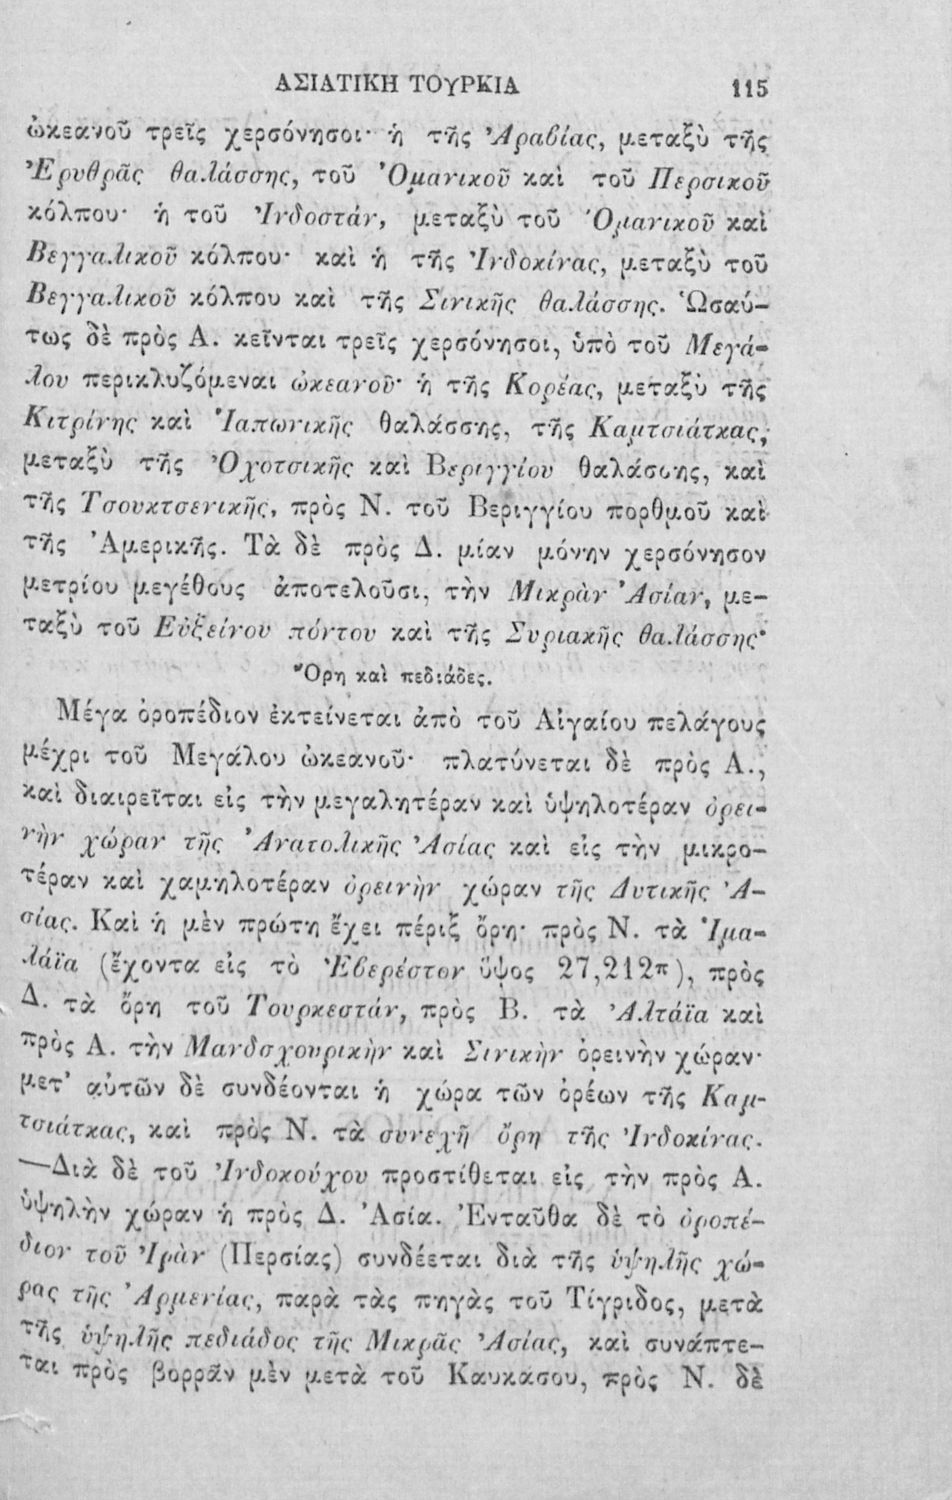 ΑΣΙΑΤΙΚΗ ΤΟΥΡΚΙΑ 115
ὠκεανοῦ τρεῖς χερσόνησοι· ἡ τῆς Ἀραβίας, μεταξὺ τῆς
Ἐρυθρᾶς θαλάσσης, τοῦ Ὀμανικοῦ καὶ τοῦ Περσικοῦ
κόλπου· ἡ τοῦ Ἰνδοστάν, μεταξὺ τοῦ Ὀμανικοῦ καὶ
Βεγγαλικοῦ κόλπου· καὶ ἡ τῆς Ἰνδοκίνας, μεταξὺ τοῦ
Βεγγαλικοῦ κόλπου καὶ τῆς Σινικῆς θαλάσσης. Ὡσαύ-
τως δὲ πρὸς Α. κεῖνται τρεῖς χερσόνησοι, ὑπὸ τοῦ Μεγά-
λου περικλυζόμεναι ὠκεανοῦ· ἡ τῆς Κορέας, μεταξὺ τῆς
Κιτρίνης καὶ Ἰαπωνικῆς θαλάσσης, τῆς Καμτσιάτκας,
μεταξὺ τῆς Ὀχοτσικῆς καὶ Βεριγγίου θαλάσσης, καὶ
τῆς Τσουκτσενικῆς, πρὸς Ν. τοῦ Βεριγγίου πορθμοῦ καὶ
τῆς Ἀμερικῆς. Τὰ δὲ πρὸς Δ. μίαν μόνην χερσόνησον
μετρίου μεγέθους ἀποτελοῦσι, τὴν Μικρὰν Ἀσίαν, με-
ταξὺ τοῦ Εὐξείνου πόντου καὶ τῆς Συριακῆς θαλάσσης·
Ὄρη καὶ πεδιάδες.
Μέγα ὀροπέδιον ἐκτείνεται ἀπὸ τοῦ Αἰγαίου πελάγους
μέχρι τοῦ Μεγάλου ὠκεανοῦ· πλατύνεται δὲ πρὸς Α.,
καὶ διαιρεῖται εἰς τὴν μεγαλητέραν καὶ ὑψηλοτέραν ὀρει-
νὴν χώραν τῆς Ἀνατολικῆς Ἀσίας καὶ εἰς τὴν μικρο-
τέραν καὶ χαμηλοτέραν ὀρεινὴν χώραν τῆς Δυτικῆς Ἀ-
σίας. Καὶ ἡ μὲν πρώτη ἔχει πέριξ ὄρη· πρὸς Ν. τὰ Ἰμα-
λάϊα (ἔχοντα εἰς τὸ Ἐβερέστον ὕψος 27,212π), πρὸς
Δ. τὰ ὄρη τοῦ Τουρκεστάν, πρὸς Β. τὰ Ἀλτάϊα καὶ
πρὸς Α. τὴν Μανδσχουρικὴν καὶ Σινικὴν ὀρεινὴν χώραν·
μετ' αὐτῶν δὲ συνδέονται ἡ χώρα τῶν ὀρέων τῆς Καμ-
τσιάτκας, καὶ πρὸς Ν. τὰ συνεχῆ ὄρη τῆς Ἰνδοκίνας.
—Διὰ δὲ τοῦ Ἰνδοκούχου προστίθεται εἰς τὴν πρὸς Α.
ὑψηλὴν χώραν ἡ πρὸς Δ. Ἀσία. Ἐνταῦθα δὲ τὸ ὀροπέ-
διον τοῦ Ἰρὰν (Περσίας) συνδέεται διὰ τῆς ὑψηλῆς χώ-
ρας τῆς Ἀρμενίας, παρὰ τὰς πηγὰς τοῦ Τίγριδος, μετὰ
τῆς ὑψηλῆς πεδιάδος τῆς Μικρᾶς Ἀσίας, καὶ συνάπτε-
ται πρὸς βορρᾶν μὲν μετὰ τοῦ Καυκάσου, πρὸς Ν. δὲ